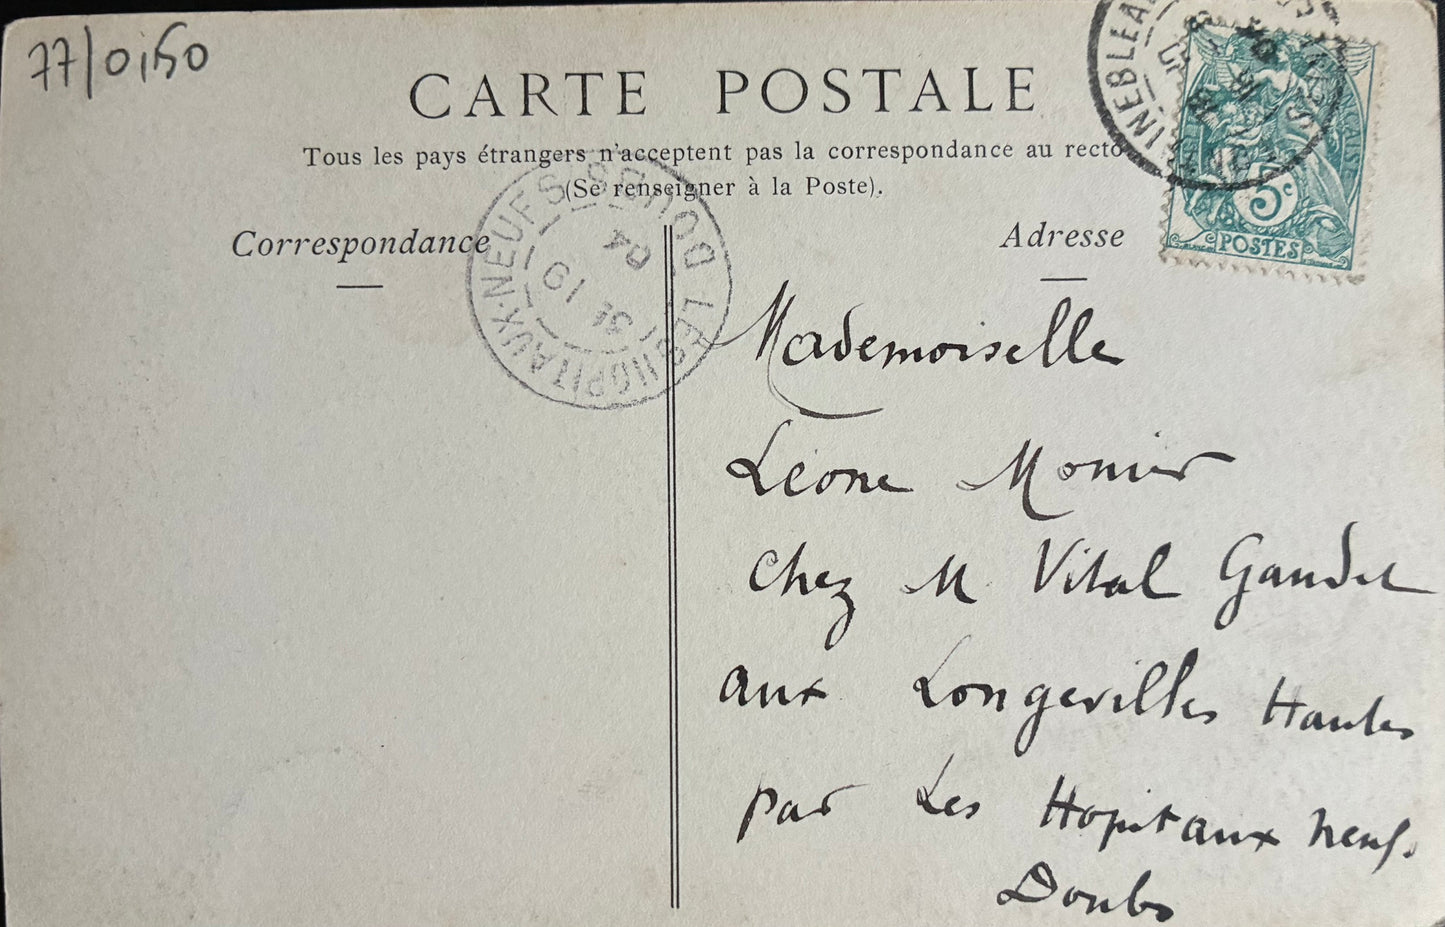 77/0,50
CARTE POSTALE
Tous les pays étrangers n'acceptent pas la correspondance au recto
(Se renseigner à la Poste).
Correspondance
Adresse
LES HOPITAUX-NEUFS DOUBS
19
04
5c
POSTES
Mademoiselle
Léone Monier
chez M. Vital Gaudet
aux Longevilles Hautes
par Les Hopitaux neufs.
Doubs